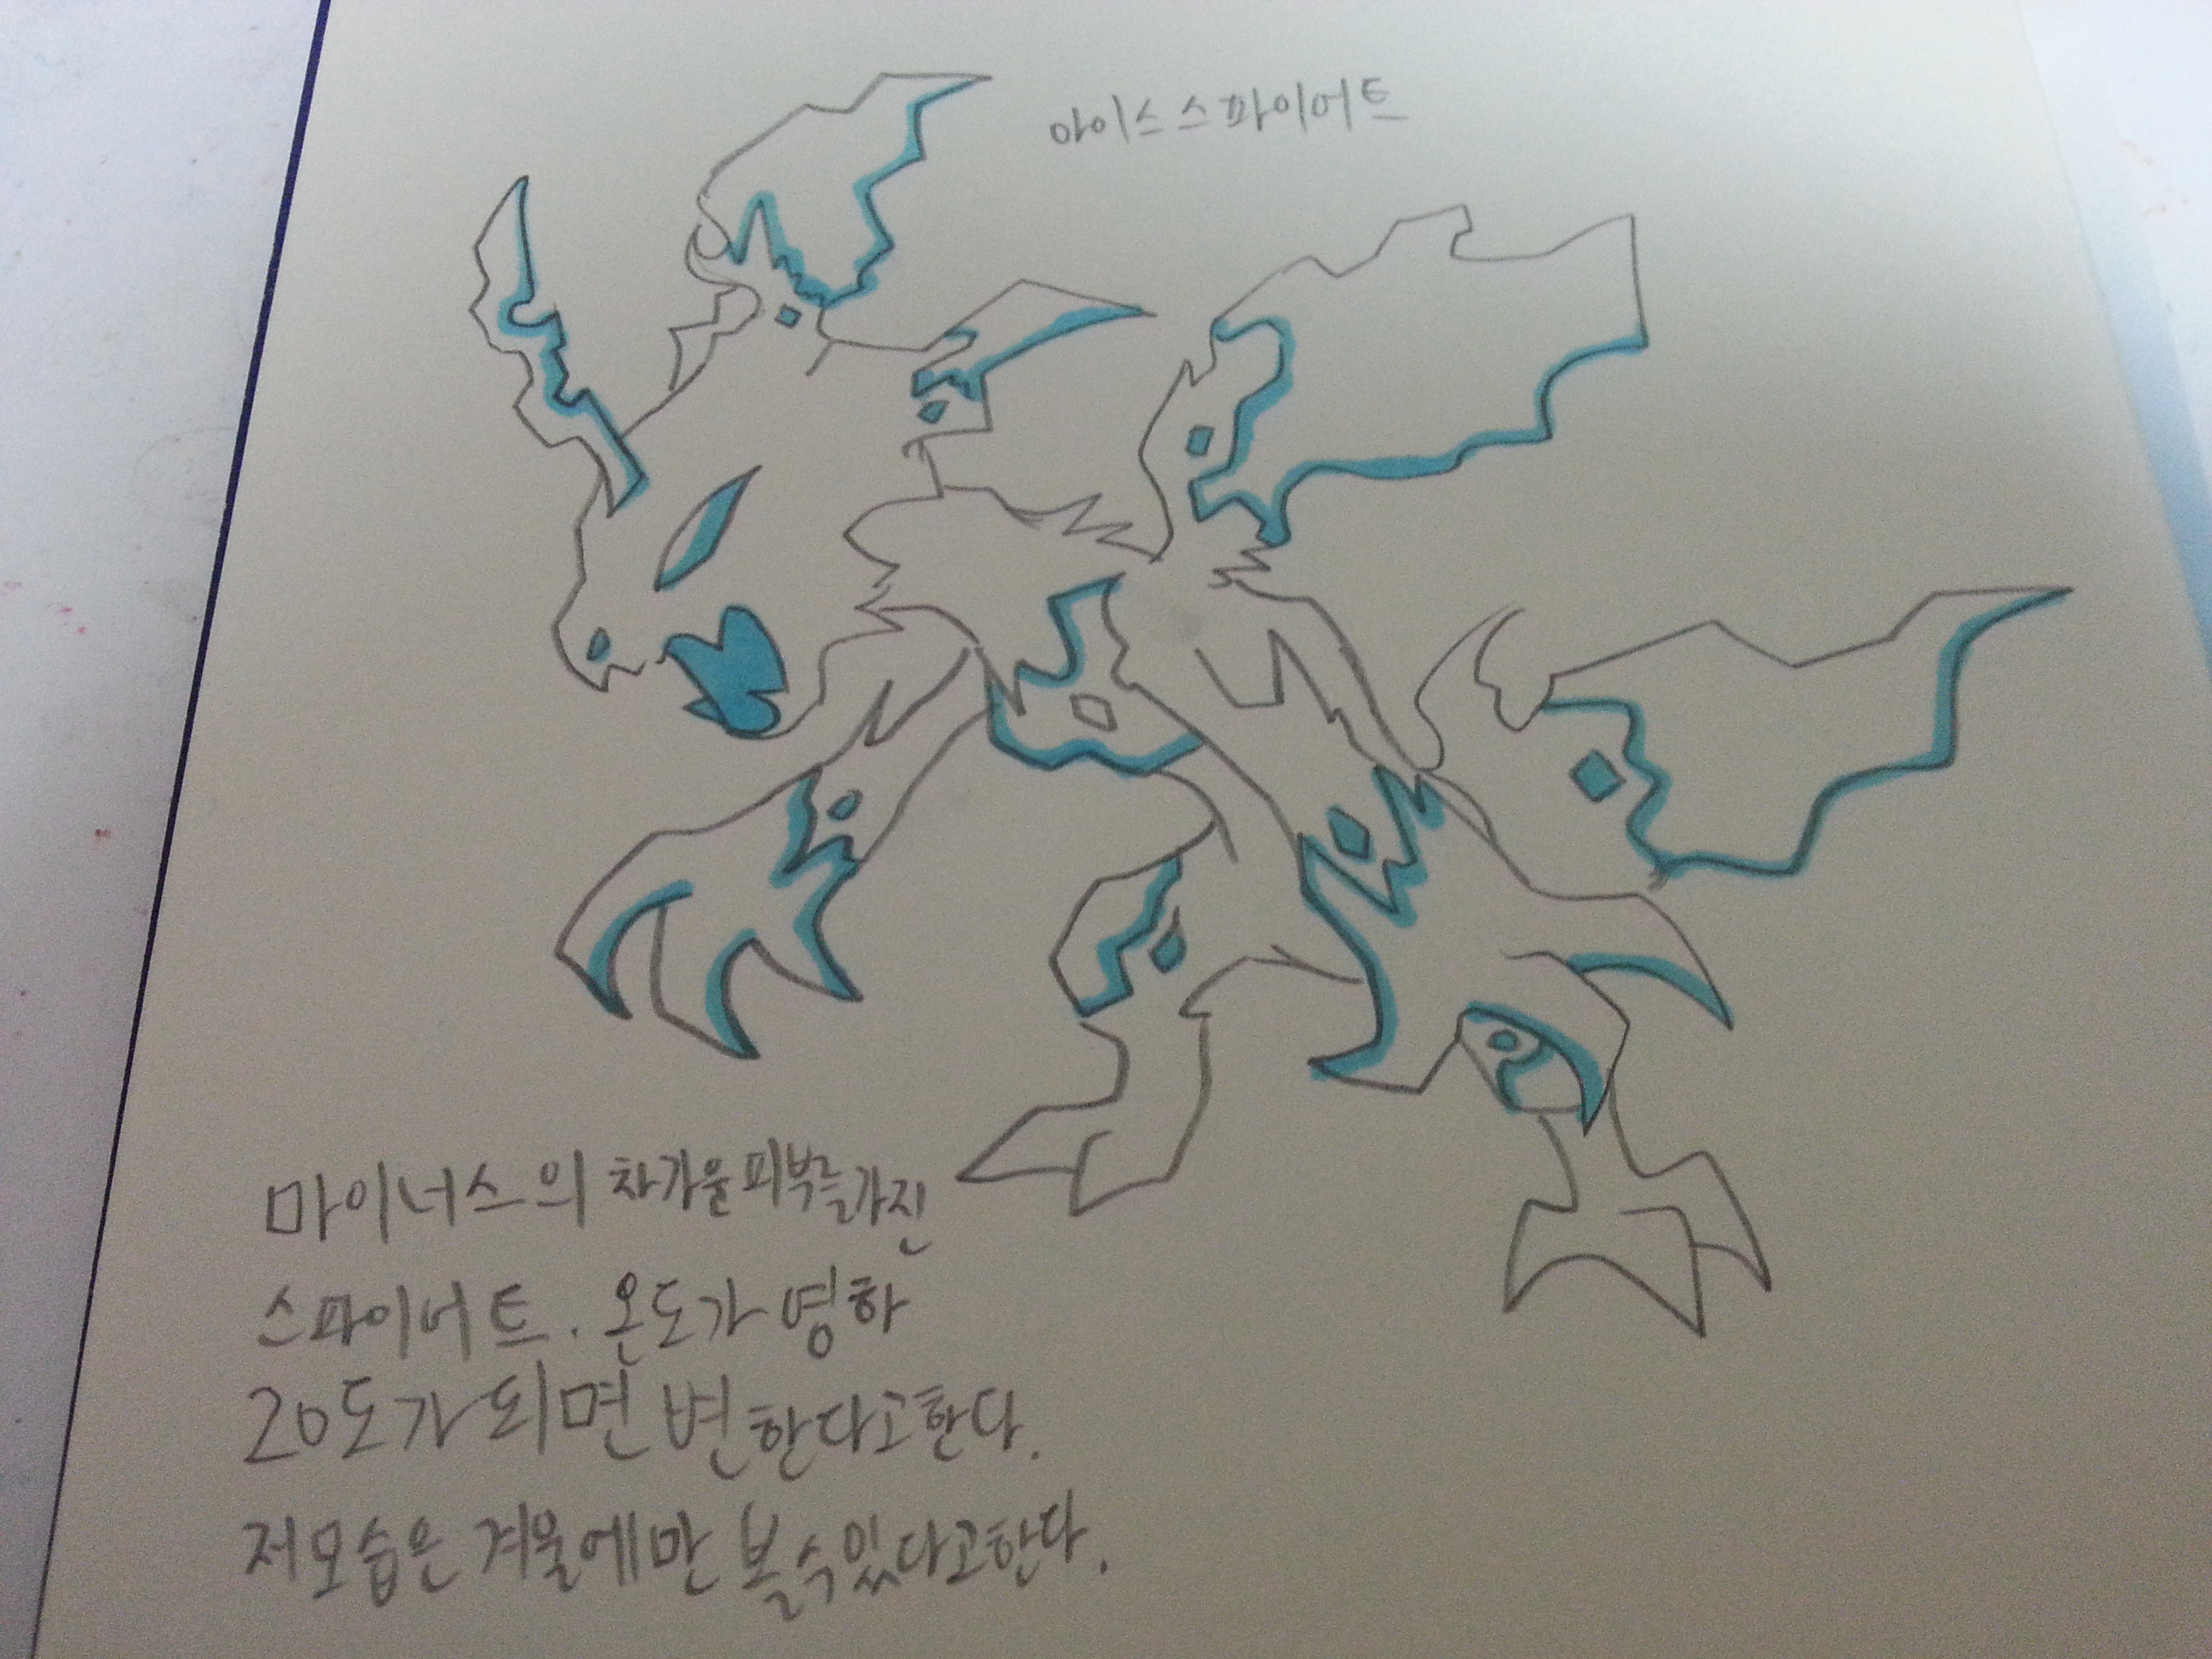 아이스스파이어트
마이너스의 차가운피부를가진
스파이어트. 온도가 영하
20도가되면 변한다고한다.
저모습은 겨울에만 볼수있다고한다.